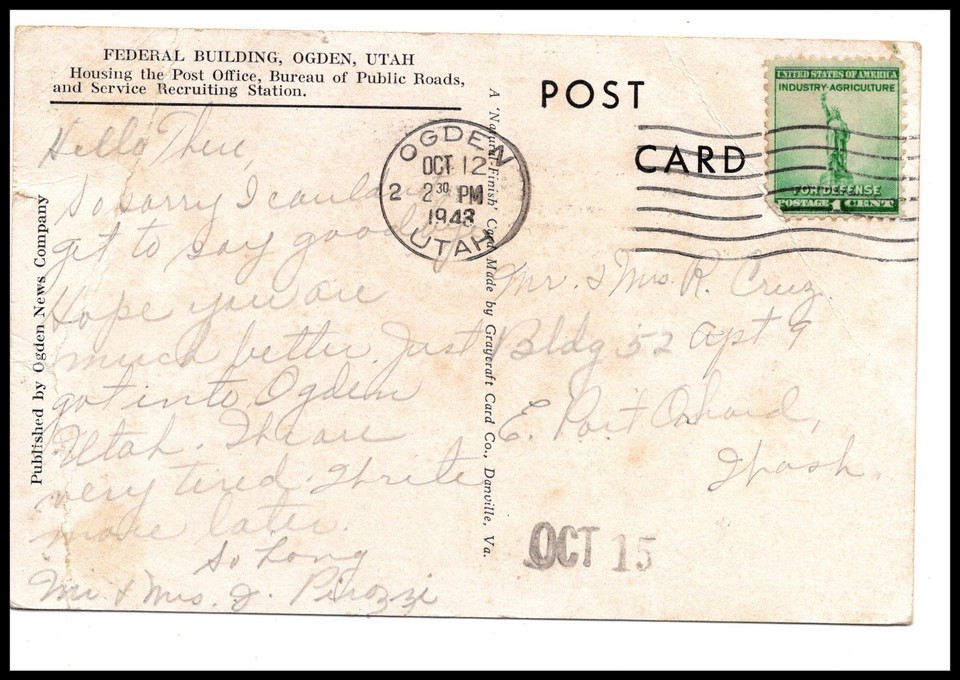 FEDERAL BUILDING, OGDEN, UTAH
Housing the Post Office, Bureau of Public Roads,
and Service Recruiting Station.
Hello There
So sorry I couldn't
get to say goodbye
Hope you are
much better. Just
got into Ogden
Utah. We are
very tired. Write
more later.
So Long
Mr & Mrs. J. Pirozzi
Published by Ogden News Company
A 'Natural-Finish' Card Made by Graycraft Card Co., Danville, Va.
POST
CARD
OGDEN
OCT 12
2 2 30 PM
1943
UTAH
UNITED STATES OF AMERICA
INDUSTRY-AGRICULTURE
FOR DEFENSE
POSTAGE 1 CENT
Mr. & Mrs. R. Cruz
Bldg 52 apt 9
E. Port Orchard,
Wash.
OCT 15